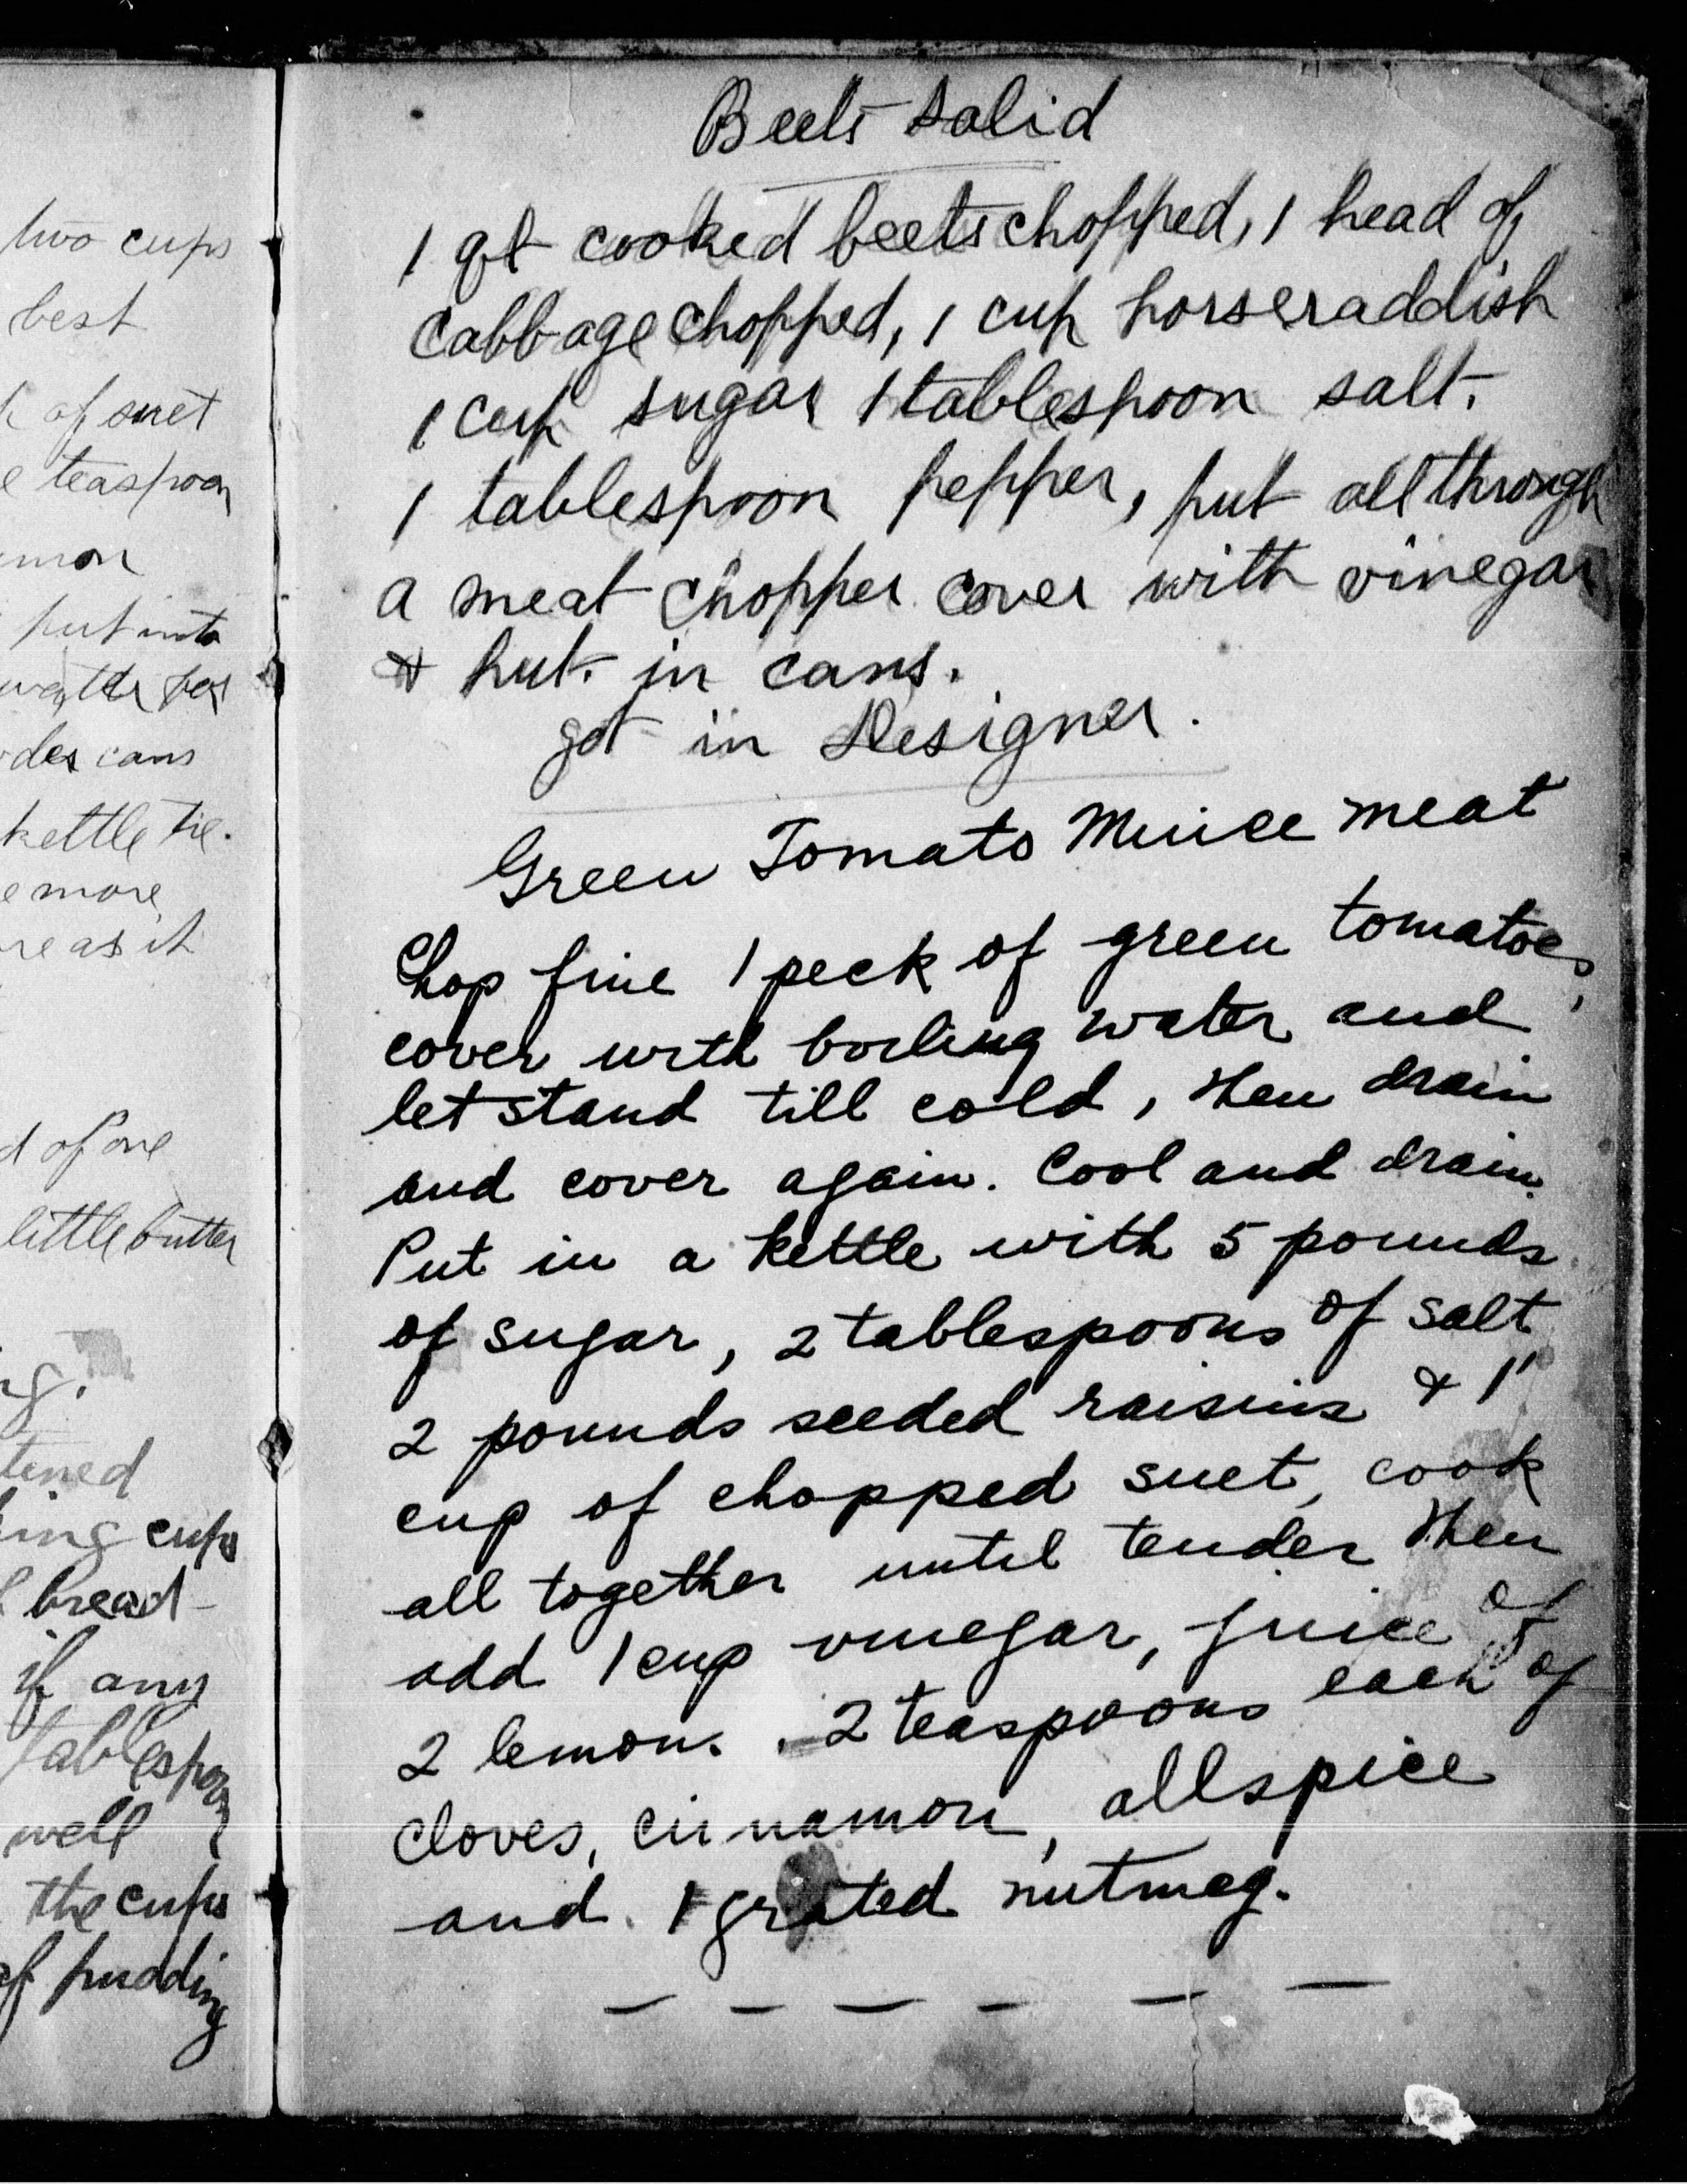 two cups
best
of suet
teaspoon
put into
cans
kettle
more
as it
of one
little butter
cups
bread
if any
tablespoon
well
the cups
of pudding
Beets Salid
1 qt cooked beets chopped, 1 head of
cabbage chopped, 1 cup horseraddish
1 cup sugar 1 tablespoon salt.
1 tablespoon pepper, put all through
a meat chopper cover with vinegar
& put in cans.
got in Designer.
Green Tomato Mince meat
Chop fine 1 peck of green tomatoes,
cover with boiling water and
let stand till cold, then drain
and cover again. Cool and drain.
Put in a kettle with 5 pounds
of sugar, 2 tablespoons of salt
2 pounds seeded raisins & 1
cup of chopped suet, cook
all together until tender then
add 1 cup vinegar, juice of
2 lemons. 2 teaspoons each of
cloves, cinnamon, allspice
and 1 grated nutmeg.